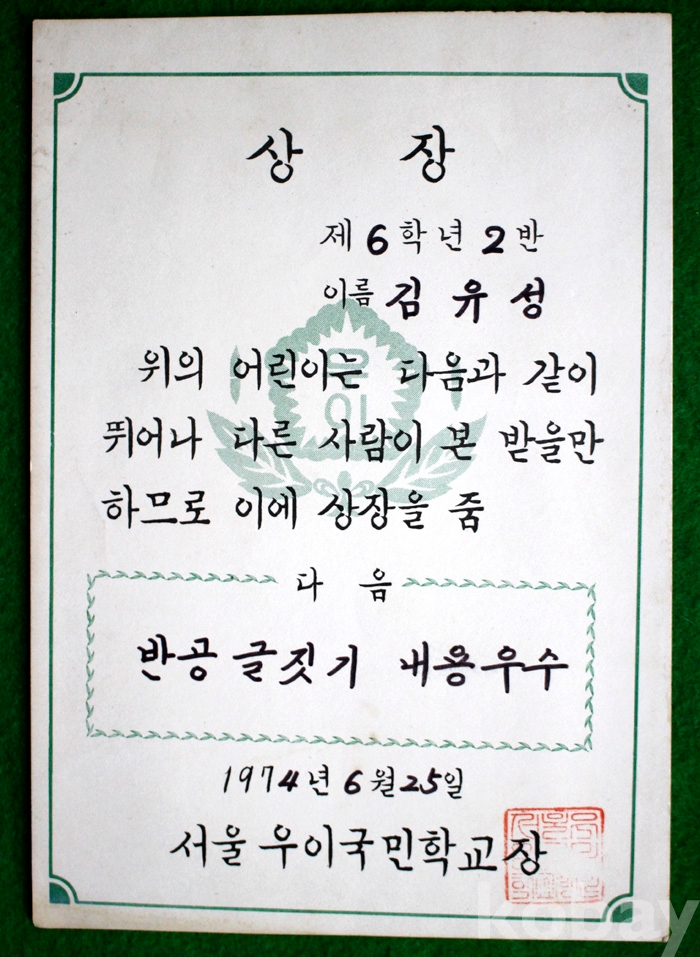 상 장
제 6 학년 2 반
이름 김 유 성
우이
위의 어린이는 다음과 같이
뛰어나 다른 사람이 본 받을만
하므로 이에 상장을 줌
다 음
반공 글짓기 내용우수
1974년 6월 25일
서울 우이국민학교장
kobay